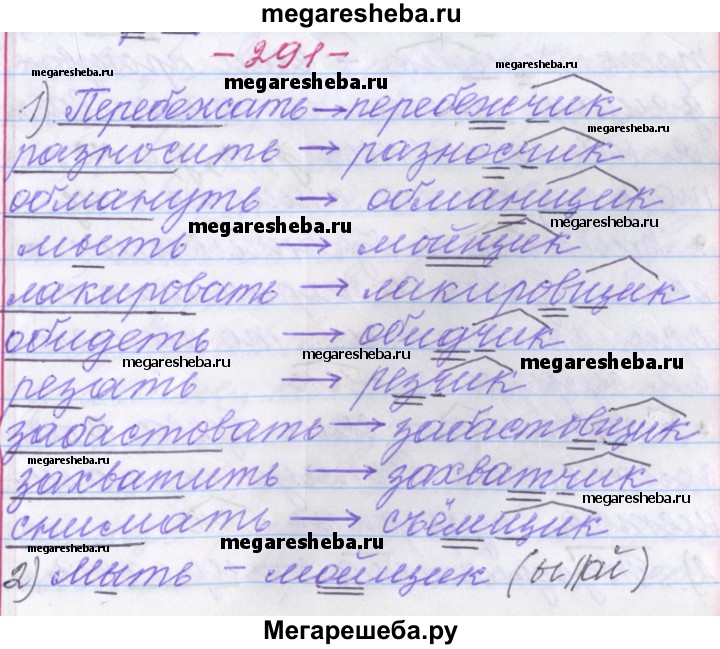 megaresheba.ru
- 291 -
megaresheba.ru
megaresheba.ru
megaresheba.ru
1) Перебежать → перебежчик
megaresheba.ru
разносить → разносчик
обмануть → обманщик
megaresheba.ru
мыть → мойщик
лакировать → лакировщик
обидеть → обидчик
megaresheba.ru
megaresheba.ru
megaresheba.ru
резать → резчик
забастовать → забастовщик
megaresheba.ru
захватить → захватчик
megaresheba.ru
снимать → съёмщик
megaresheba.ru
megaresheba.ru
2) Мыть - мойщик (ы//ой)
Мегарешеба.ру